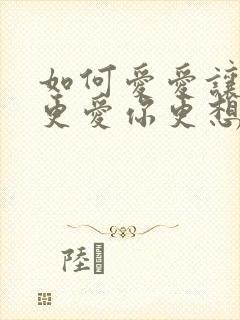 如何愛愛讓
更愛你更想
陸